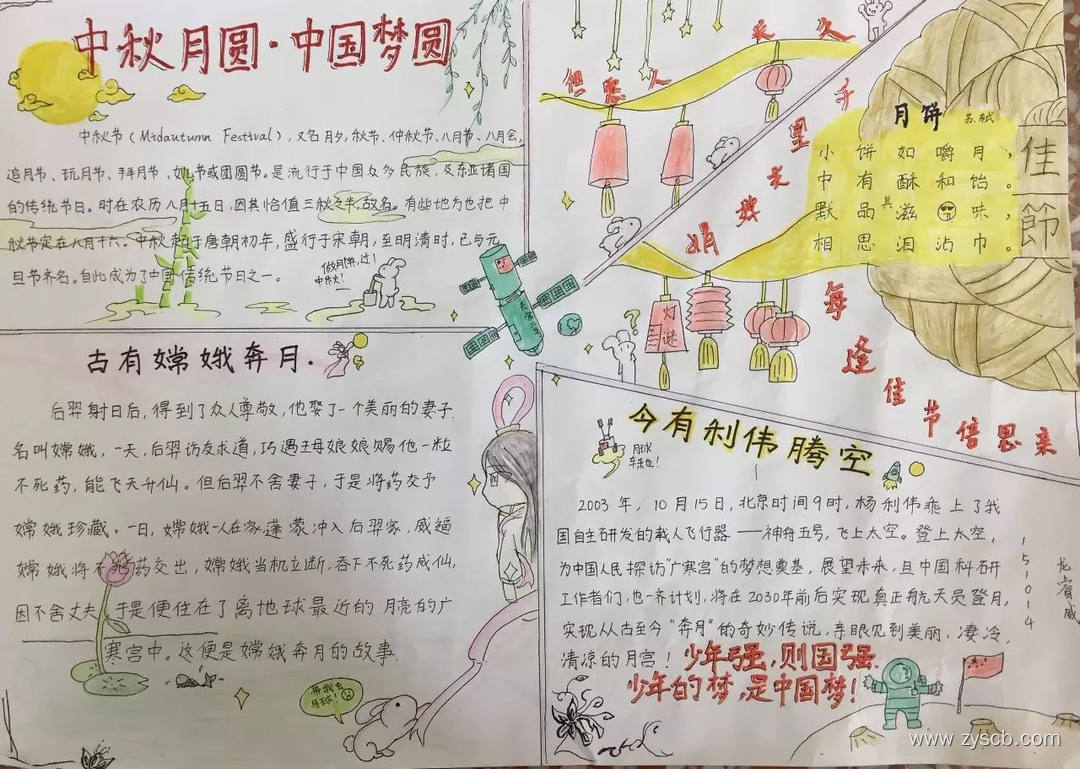 中秋月圆·中国梦圆
中秋节（Midautumn Festival），又名月夕、秋节、仲秋节、八月节、八月会、
追月节、玩月节、拜月节、女儿节或团圆节。是流行于中国众多民族，及东亚诸国
的传统节日。时在农历八月十五日，因其恰值三秋之半，故名。有些地方也把中
秋节定在八月十六。中秋起于唐朝初年，盛行于宋朝，至明清时，已与元
旦节齐名。自此成为了中国传统节日之一。
做月饼，过
中秋！
但愿人
长久
千
里
共
婵
娟
每
逢
佳
节
倍
思
亲
灯
谜
佳
節
月饼 苏轼
小饼如嚼月，
中有酥和饴。
默品其滋味，
相思泪沾巾。
古有嫦娥奔月.
后羿射日后，得到了众人尊敬，他娶了一个美丽的妻子.
名叫嫦娥，一天，后羿访友求道，巧遇王母娘娘赐他一粒
不死药，能飞天升仙。但后羿不舍妻子，于是将药交予
嫦娥珍藏。一日，嫦娥一人在家逢蒙冲入后羿家，威逼
嫦娥将不死药交出，嫦娥当机立断，吞下不死药成仙，
因不舍丈夫，于是便住在了离地球最近的月亮的广
寒宫中。这便是嫦娥奔月的故事.
带我去
月球！
今有利伟腾空
月球
车来也！
2003年，10月15日，北京时间9时，杨利伟乘上了我
国自主研发的载人飞行器——神舟五号，飞上太空。登上太空，
为中国人民探访“广寒宫”的梦想奠基，展望未来，且中国科研
工作者们，也一齐计划，将在2030年前后实现真正航天员登月，
实现从从古至今“奔月”的奇妙传说，亲眼见到美丽、凄冷，
清凉的月宫！少年强，则国强
少年的梦，是中国梦！
151014
龙宾威
www.zyscb.com